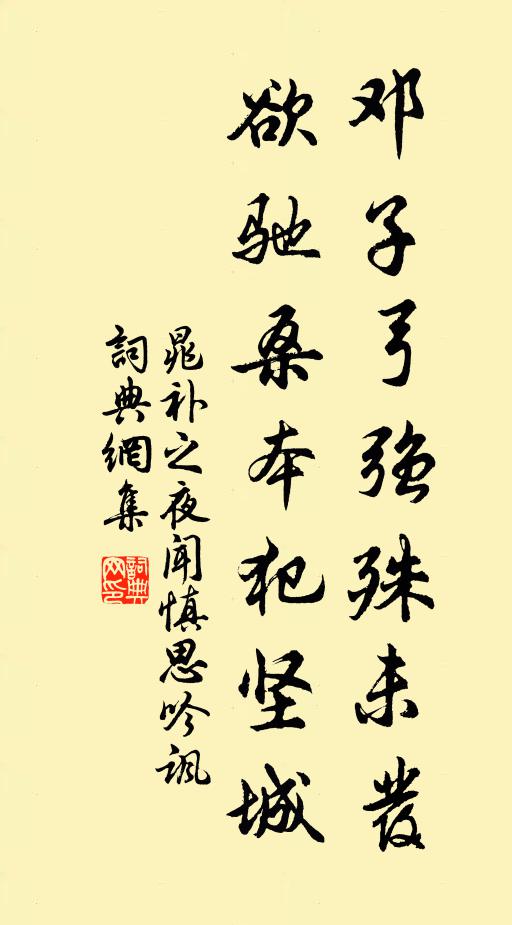 邓子弓強殊未發
欲驰桑本犯坚城
晁补之夜闻慎思吟讽
詞典網集
詞典网印